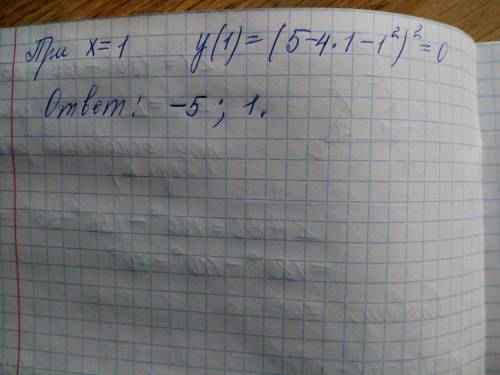 При x=1 y(1) = (5-4·1-1²)² = 0
Ответ: -5; 1.